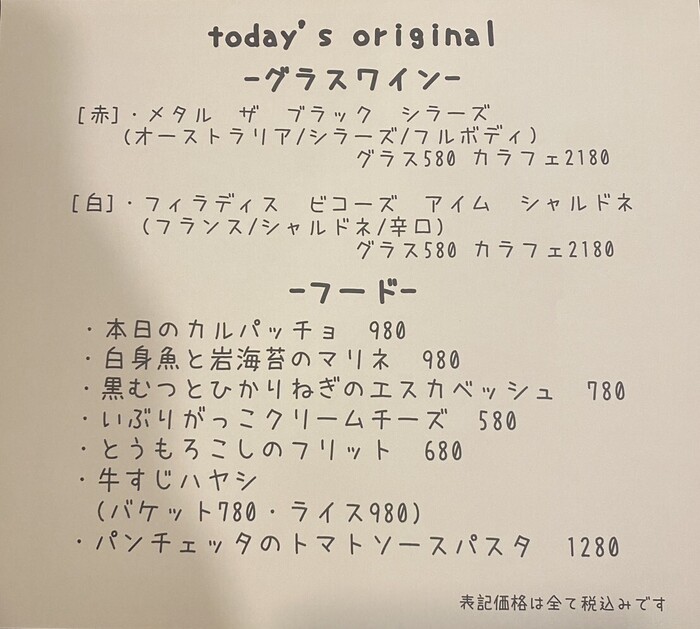 today's original
-グラスワイン-
[赤]・メタル ザ ブラック シラーズ
(オーストラリア/シラーズ/フルボディ)
グラス580 カラフェ2180
[白]・フィラディス ビコーズ アイム シャルドネ
(フランス/シャルドネ/辛口)
グラス580 カラフェ2180
-フード-
・本日のカルパッチョ 980
・白身魚と岩海苔のマリネ 980
・黒むつとひかりねぎのエスカベッシュ 780
・いぶりがっこクリームチーズ 580
・とうもろこしのフリット 680
・牛すじハヤシ
(バケット780・ライス980)
・パンチェッタのトマトソースパスタ 1280
表記価格は全て税込みです